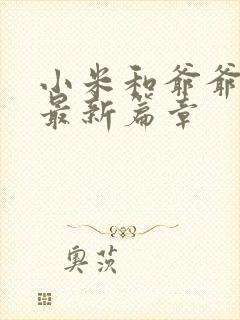 小米和爷爷
最新篇章
奥茨